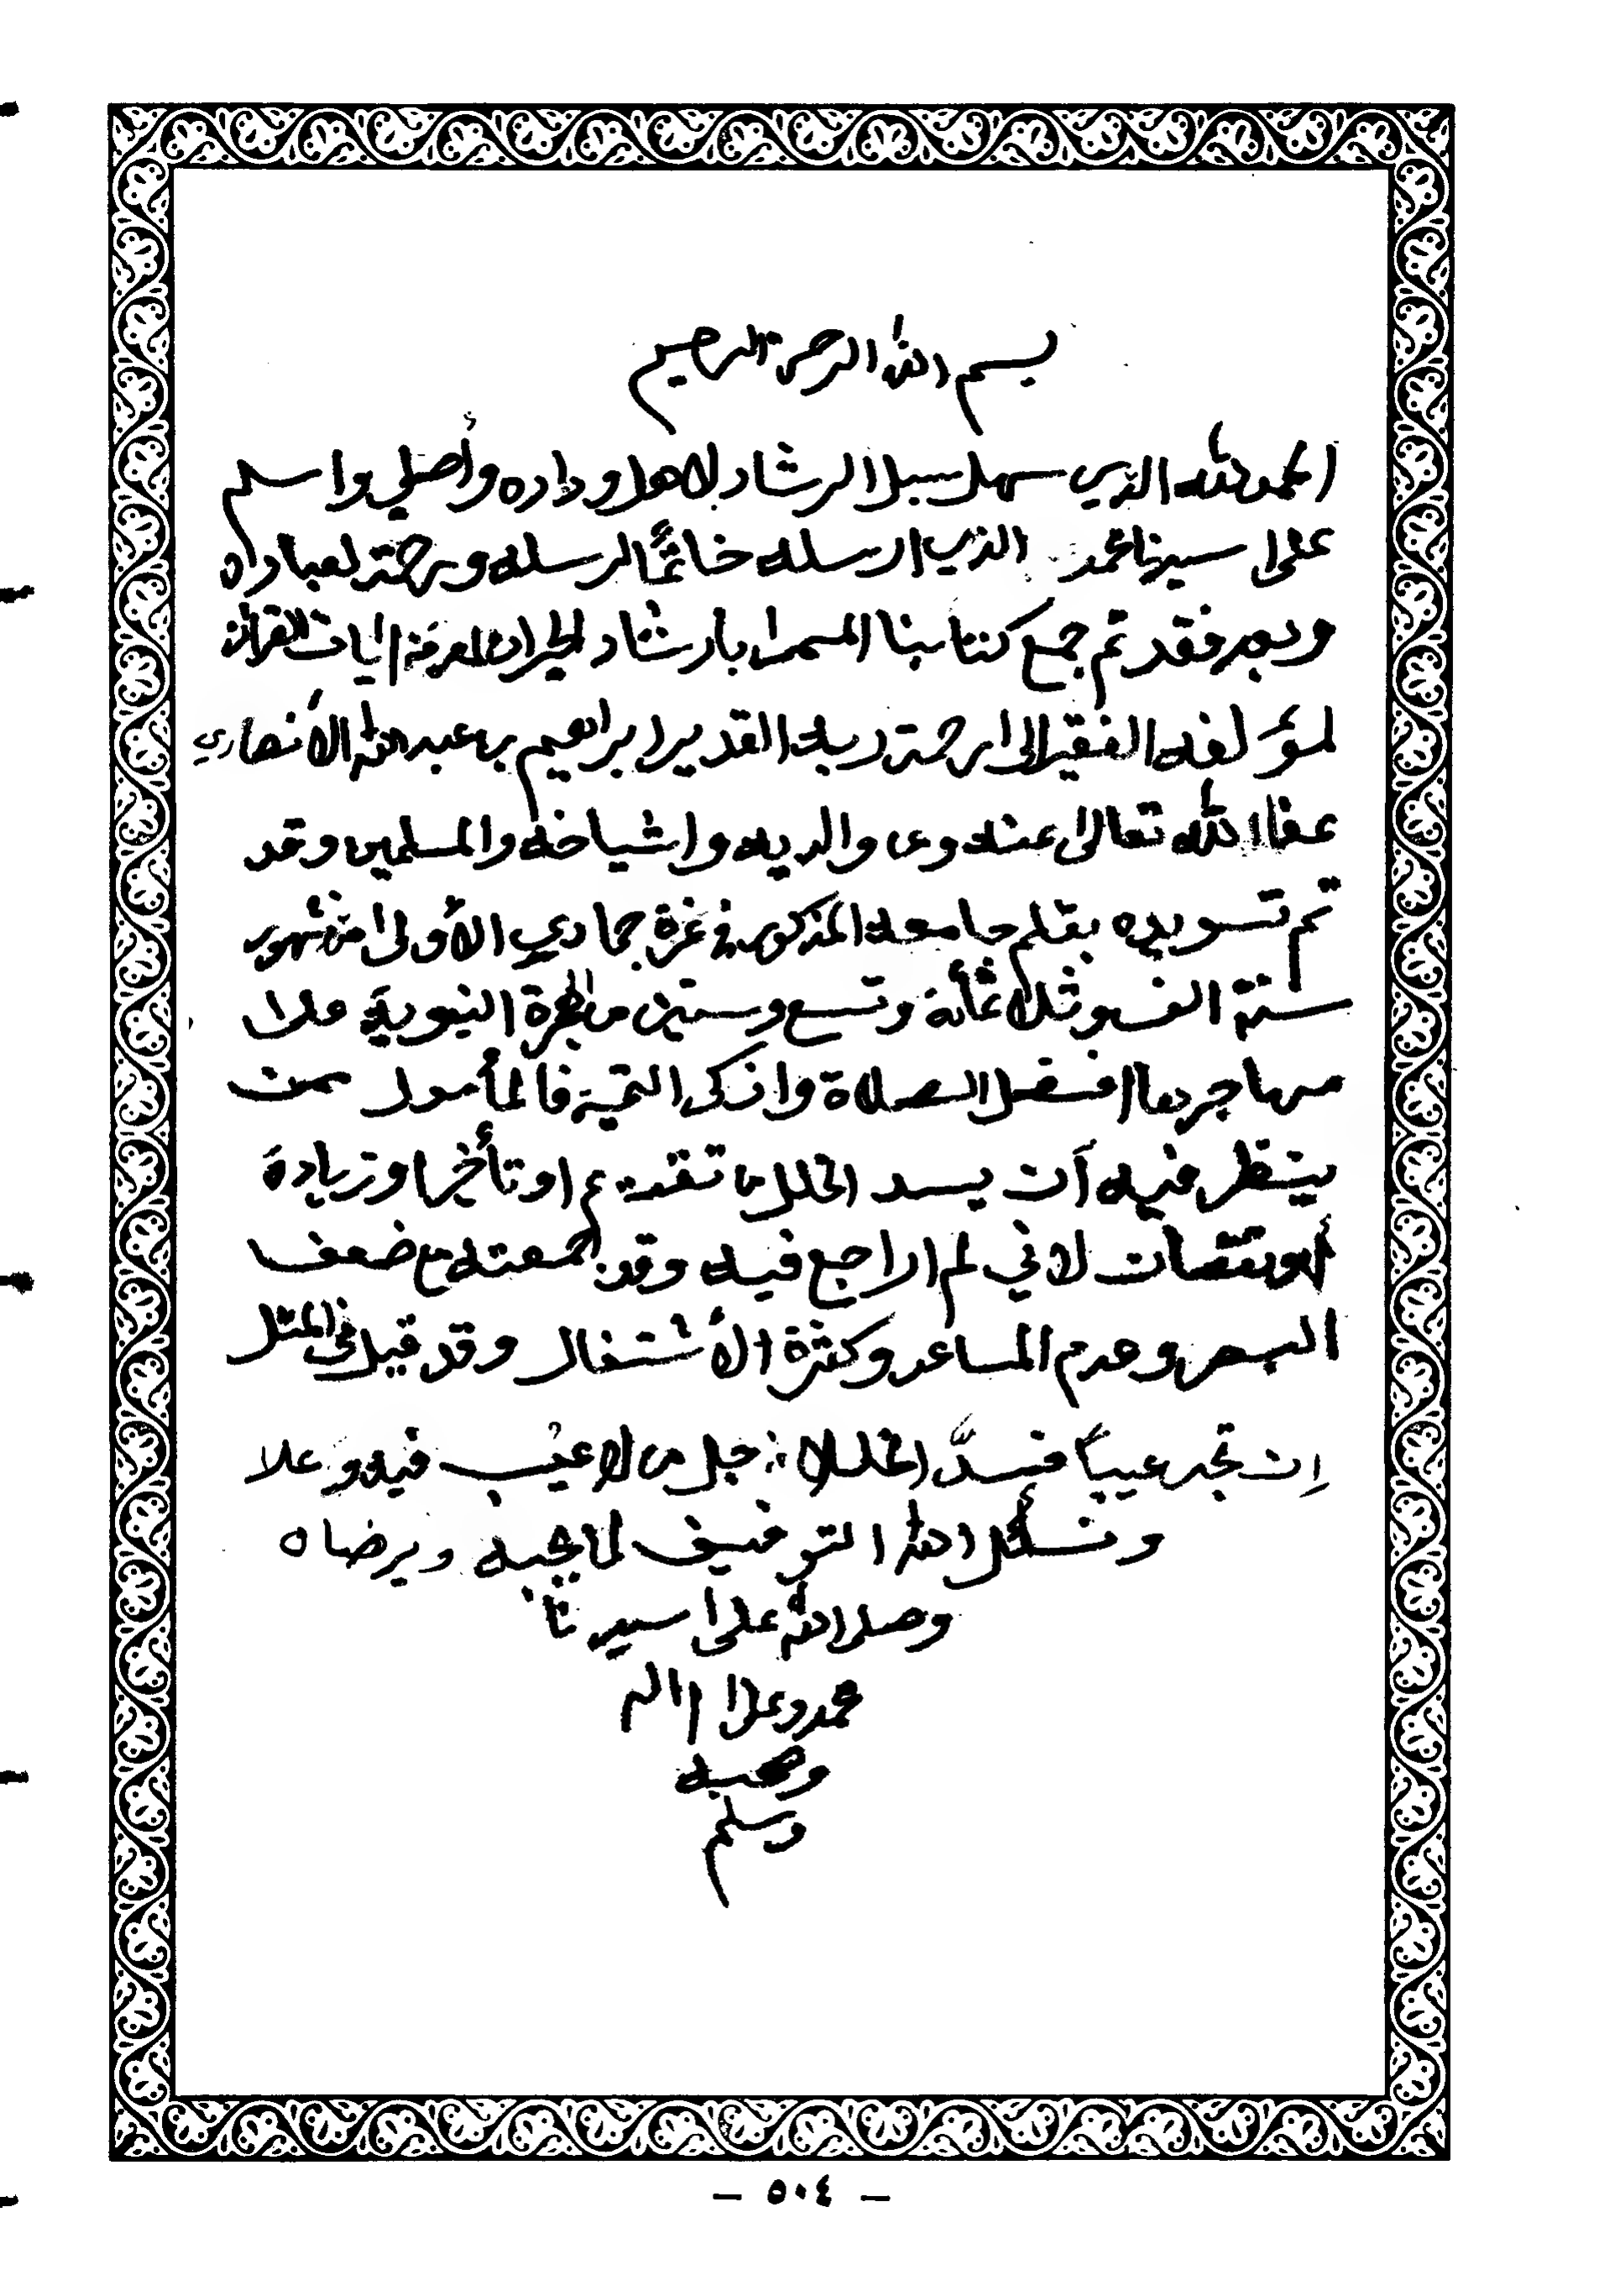 بسم الله الرحمن الرحيم
الحمد لله الذي سهل سبل الرشاد لاهل وداده وأصلي واسلم
على سيدنا محمد الذي ارسله خاتمًا لرسله ورحمة لعباده
وبعد فقد تم جمع كتابنا المسمى بارشاد الحيران لمعرفة آيات القرآن
لمؤلفه الفقير الى رحمة ربه القدير ابراهيم بن عبد الله الأنصاري
عفا الله تعالى عنه وعن والديه واشياخه والمسلمين وقد
تم تسويده بقلم جامعه المذكور في غرة جمادي الأولى من شهور
سنة الف وثلاثمأئة وتسع وستين من الهجرة النبوية على
مهاجرها افضل الصلاة وازكى التحية فالمأمول ممن
ينظر فيه أن يسد الخلل من تقديم او تأخير او زيادة
أو نقصان لاني لم اراجع فيه وقد جمعته مع ضعف
البصر وعدم المساعد وكثرة الأشتغال وقد قيل في المثل
إن تجد عيباً فسدَّ الخللا جل من لا عيب فيه وعلا
ونسأل الله التوفيق لما يحبه ويرضاه
وصلى الله على سيدنا
محمد وعلى اله
وصحبه
وسلم
— ٥٠٤ —